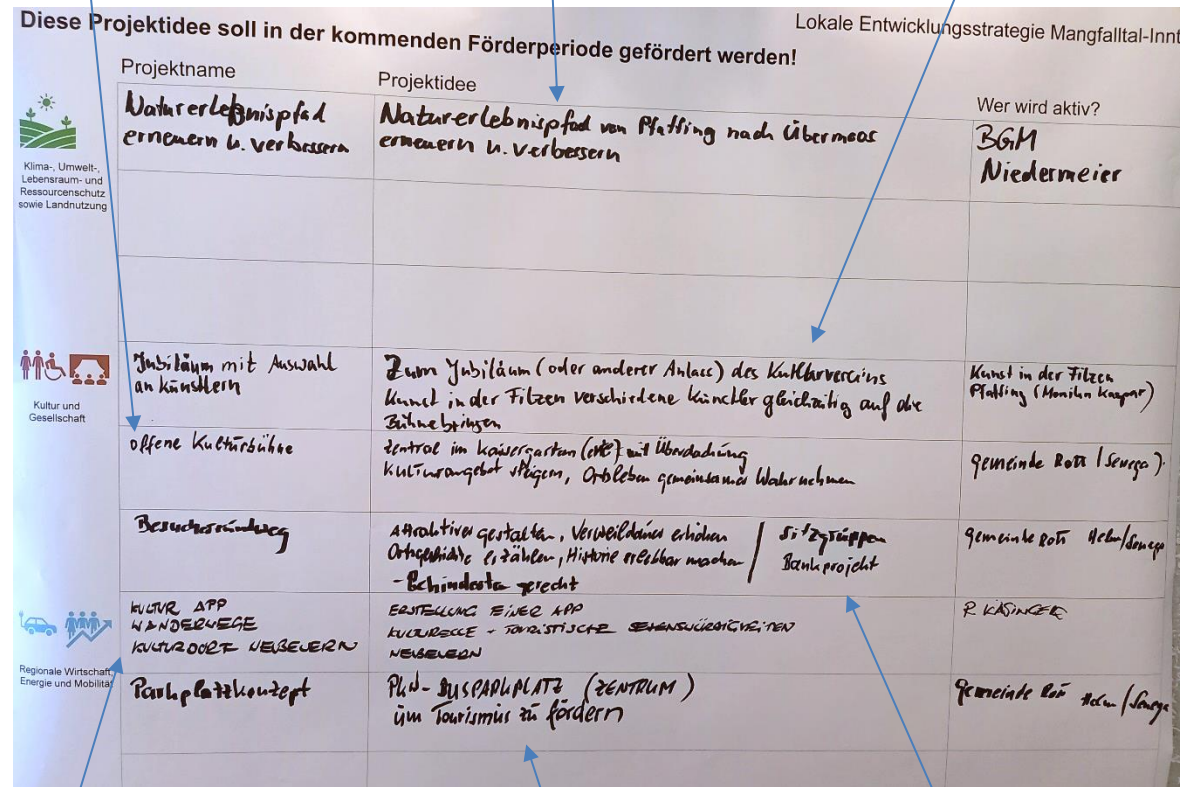 Diese Projektidee soll in der kommenden Förderperiode gefördert werden!
Lokale Entwicklungsstrategie Mangfalltal-Innt
Projektname
Projektidee
Wer wird aktiv?
Klima-, Umwelt-,
Lebensraum- und
Ressourcenschutz
sowie Landnutzung
Naturerlebnispfad
erneuern u. verbessern
Naturerlebnispfad von Pfaffing nach Übermoos
erneuern u. verbessern
BGM
Niedermeier
Kultur und
Gesellschaft
Jubiläum mit Auswahl
an künstlern
Zum Jubiläum (oder anderer Anlass) des Kulturvereins
Kunst in der Filzen verschiedene Künstler gleichzeitig auf die
Bühne bringen
Kunst in der Filzen
Pfaffing (Monika Kaspar)
offene Kulturbühne
zentral im Kaisergarten (etc) mit Überdachung
Kulturangebot steigern, Ortsleben gemeinsames Wahrnehmen
gemeinde Rott / Senega)
Besucherrundweg
Attraktiver gestalten, Verweildauer erhöhen
Ortsgeschichte erzählen, Historie erlebbar machen
- Behinderten gerecht
Sitzgruppen
Bankprojekt
gemeinde Rott /Senega
Regionale Wirtschaft,
Energie und Mobilität
KULTUR APP
WANDERWEGE
KULTURDORF NEUBEUERN
ERSTELLUNG EINER APP
KULTURELLE + TOURISTISCHE SEHENSWÜRDIGKEITEN
NEUBEUERN
R. KÄSINGER
Parkplatzkonzept
PKW-BUSPARKPLATZ (ZENTRUM)
üm Tourismüs zü fördern
gemeinde Rott /Senega